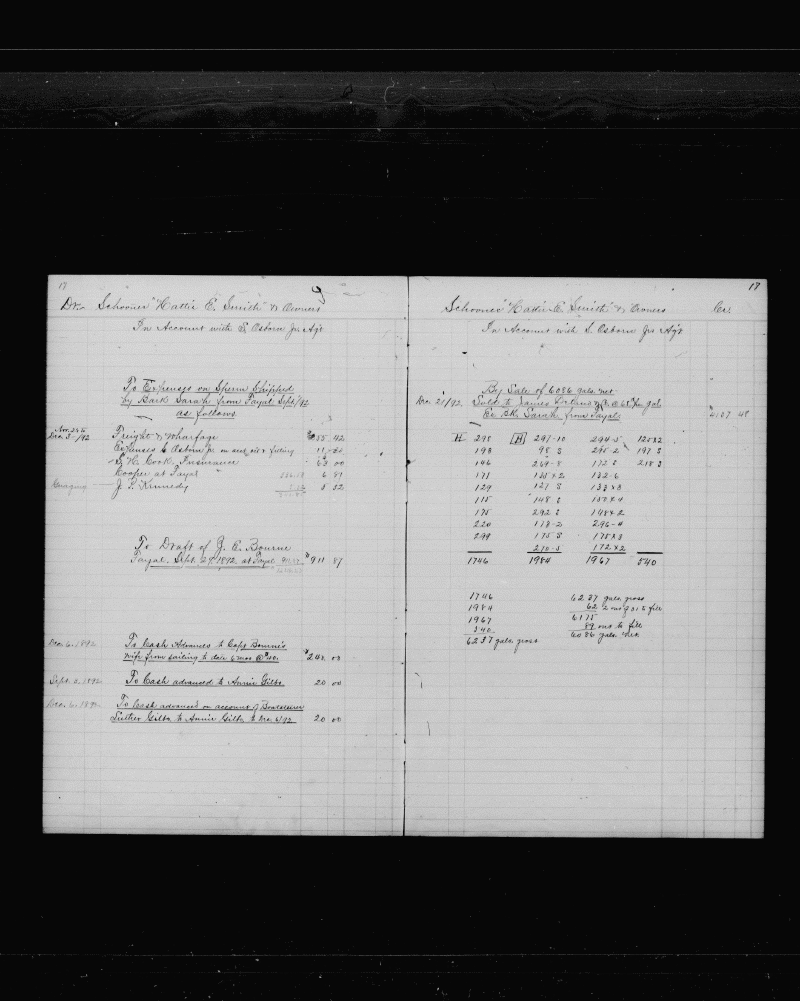 17
Dr. Schooner "Hattie E. Smith" & Owners
In Account with S. Osborn Jr. Agt
To Expenses on Sperm Shipped
by Bark Sarah from Fayal Sept/92
as follows
Nov. 25th
Dec. 3/92 Freight & Wharfage 42
Expenses S. Osborn Jr on and oil & filling 11
S. H. Cook, Insurance 63 00
Cooper at Fayal " 6 89
J. P. Kennedy 5 52
To Draft of J. E. Bourne
Fayal, Sept. 27, 1892, at Fayal $911 87
Dec. 6, 1892 To Cash Advances to Capt Bourne's
wife from sailing to date 6 mos @ $40. $240. 00
Sept. 1892 To Cash advanced to Annie Gibbs 20 00
Dec. 6. 1892 To Cash advanced on account of Boatsteerer
Luther Gibbs to Annie Gibbs to Dec 6/92 20 00
17
Schooner "Hattie E. Smith" & Owners Cr.
In Account with S. Osborn Jr. Agt
By Sale of 6086 gals. net
Dec. 21/92. Sold to James @ 68¢ per gal
Ex Bk. Sarah from Fayal 48
H 298 H 297-10 294-5 125X2
198 98 S 295-2 197 S
146 269-8 172 S 218 S
171 135X2 132-6
129 127 S 133X3
115 148 S 150X4
175 292 S 148X2
220 118-2 296-4
299 175 S 175X3
210-5 172X2
1746 1984 1967 540
1746 6237 gals. gross
1984 62
1967 6175
540 89 outs to fill
6237 gals. gross 6086 gals. net